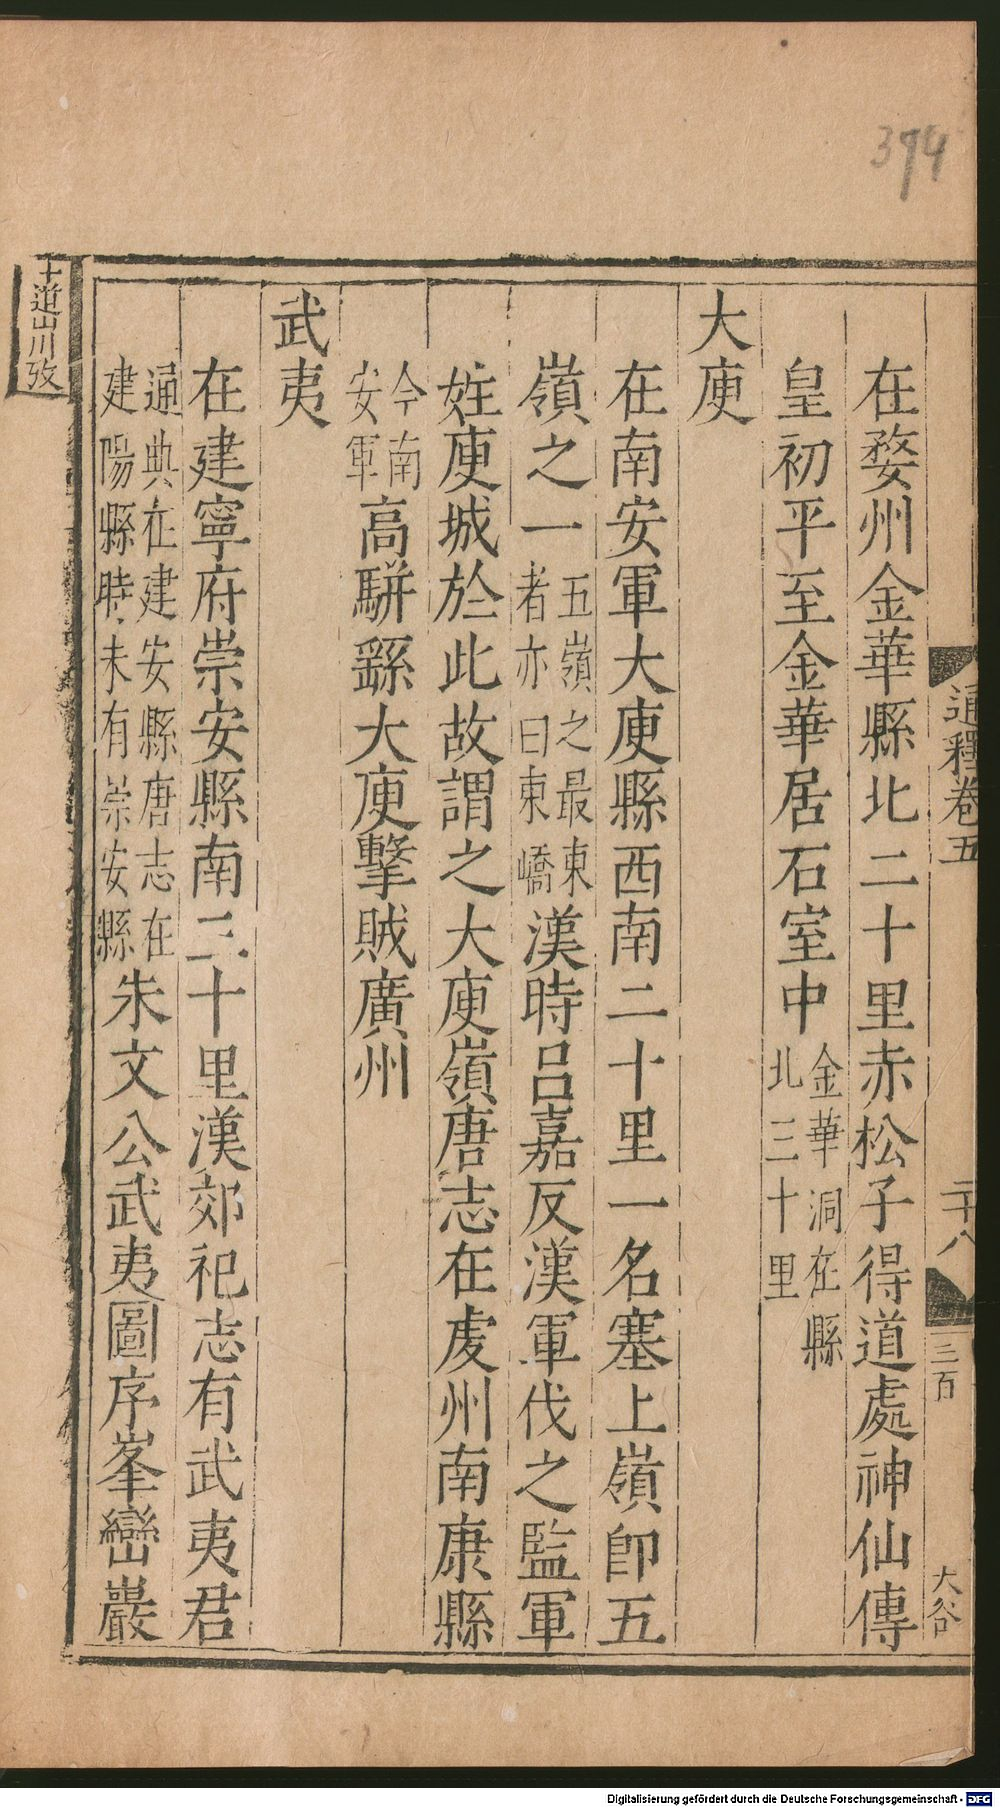 394
通釋卷五
二十八
三百
大谷
在婺州金華縣北二十里赤松子得道處神仙傳
皇初平至金華居石室中金華洞在縣北三十里
大庾
在南安軍大庾縣西南二十里一名塞上嶺即五
嶺之一五嶺之最東者亦曰東嶠漢時呂嘉反漢軍伐之監軍
姓庾城於此故謂之大庾嶺唐志在虔州南康縣
今南安軍高駢繇大庾擊賊廣州
武夷
在建寧府崇安縣南三十里漢郊祀志有武夷君
通典在建安縣唐志在建陽縣時未有崇安縣朱文公武夷圖序峯巒巖
十道山川攷
Digitalisierung gefördert durch die Deutsche Forschungsgemeinschaft - DFG